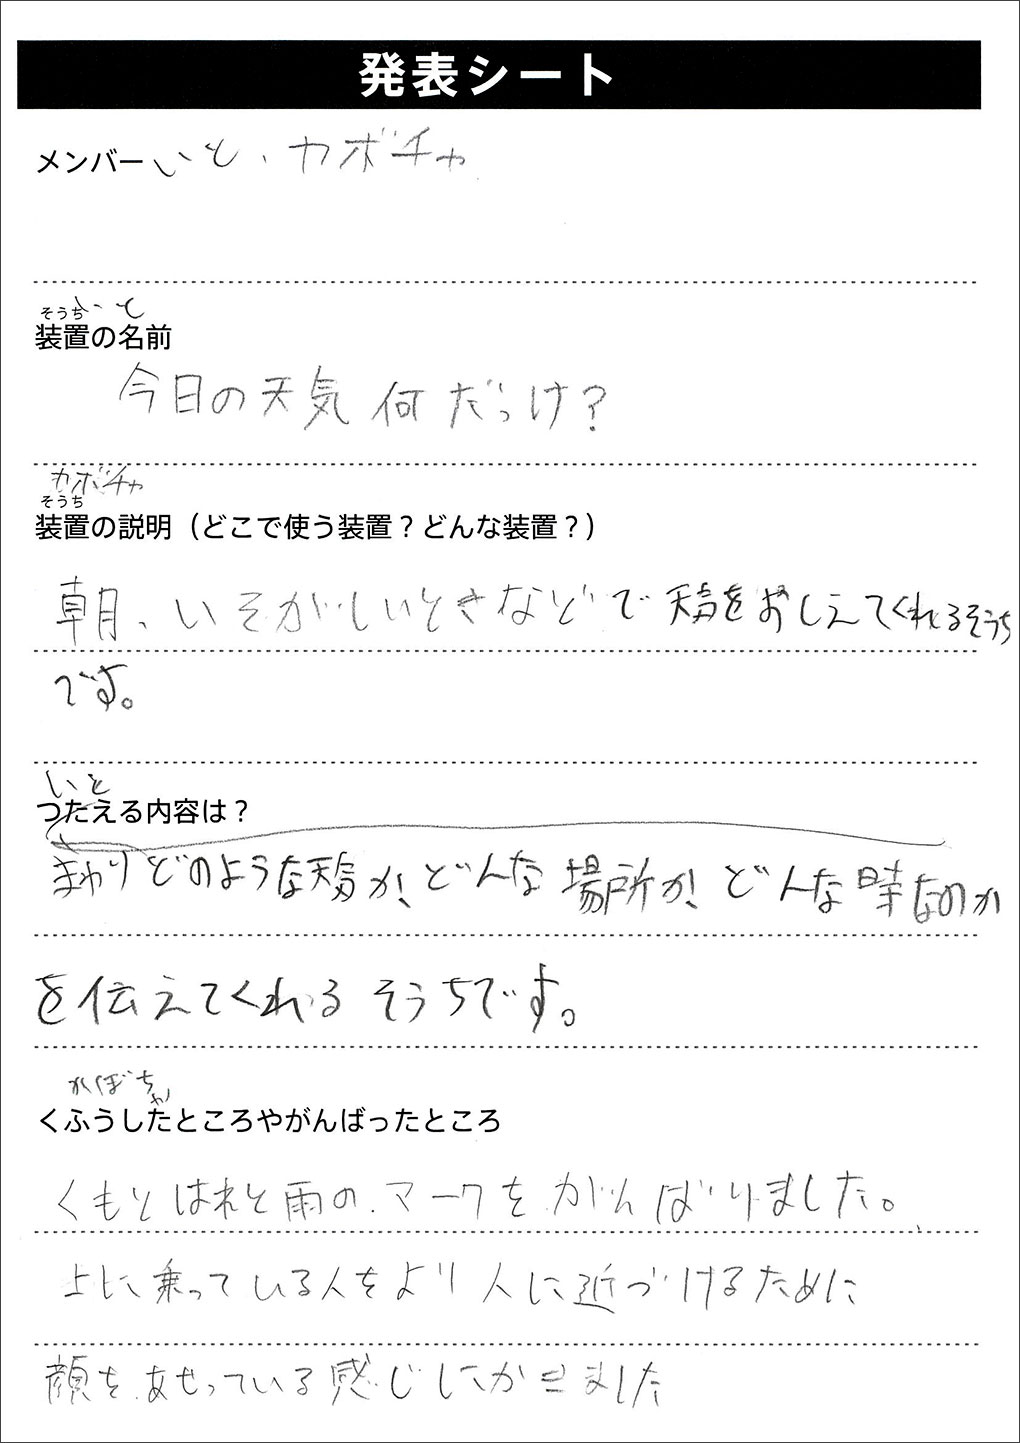 発表シート
メンバー いと、カボチャ
そうち いと
装置の名前
今日の天気何だっけ?
カボチャ
そうち
装置の説明（どこで使う装置？どんな装置？）
朝、いそがしいときなどで天気をおしえてくれるそうち
です。
いと
つたえる内容は？
まわりどのような天気か!どんな場所か!どんな時なのか
を伝えてくれるそうちです。
かぼちゃ
くふうしたところやがんばったところ
くもりはれと雨のマークをがんばりました。
上に乗っている人をより人に近づけるために
顔をあせっている感じにかきました